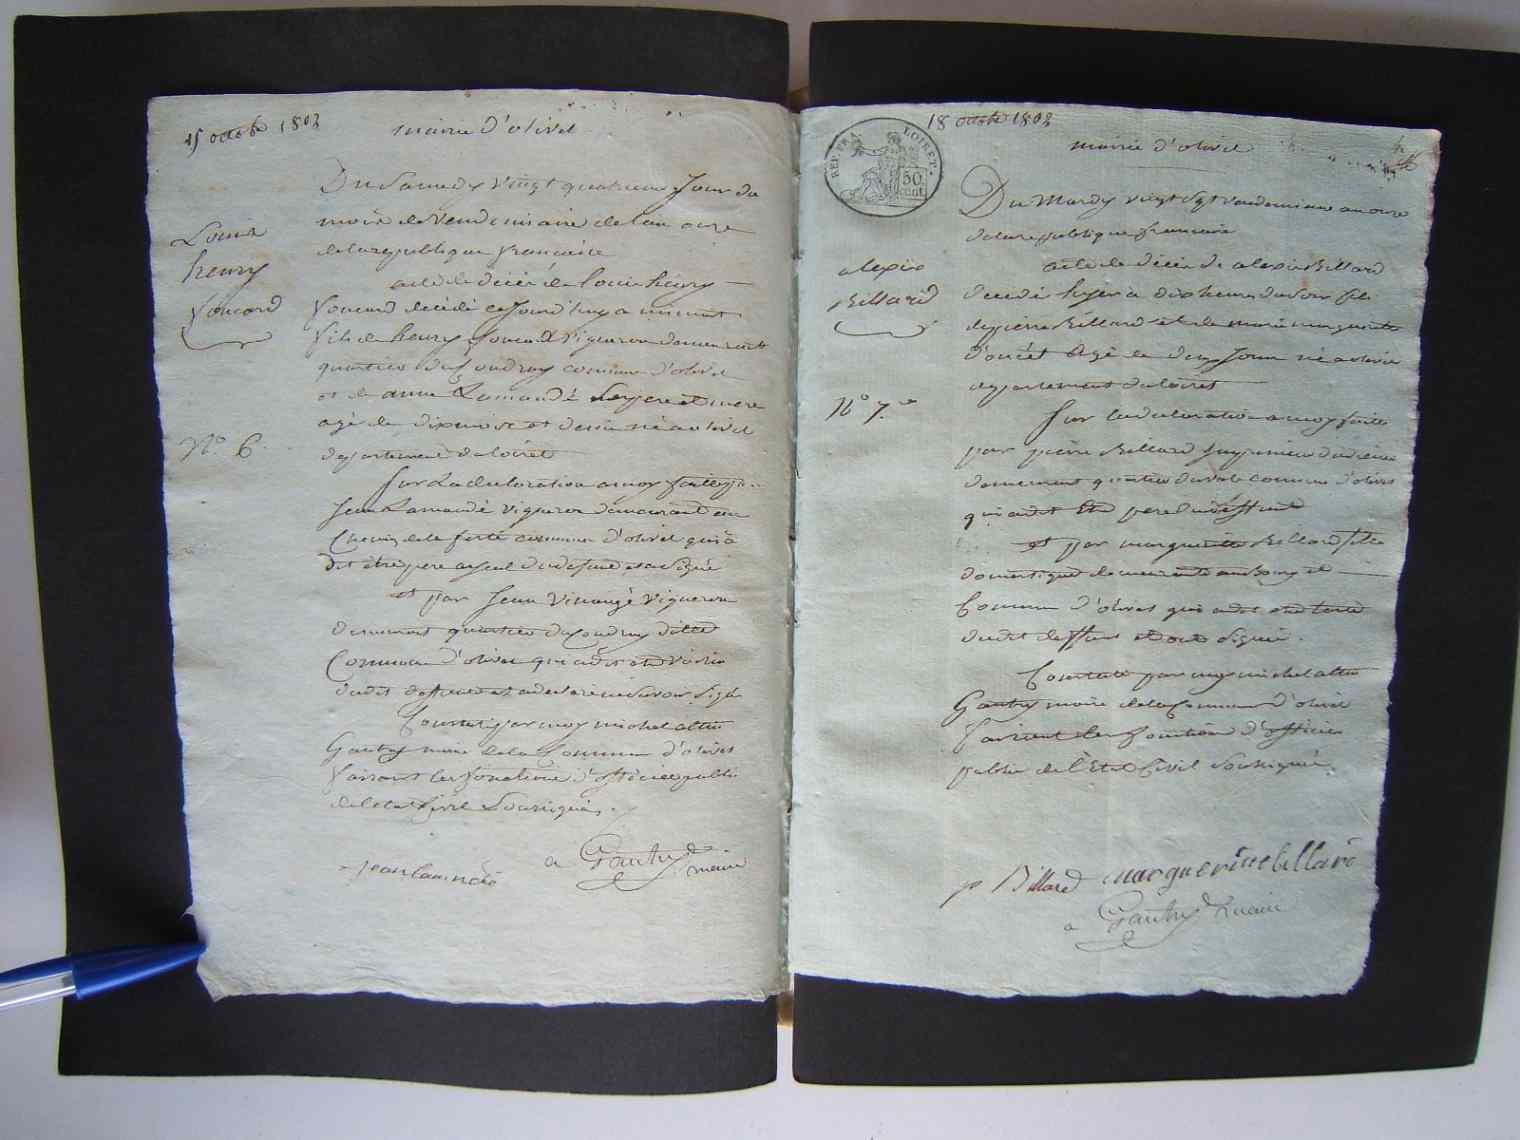 15 octobe 1802
mairie d'olivet
Du Samedy vingt quatrieme Jour du
mois de Vendemiaire de lan onze
de la republique francaise
acte de décéé de louis henry
foucard décédé ce jourd'huy a
fils de henry foucard Vigneron demeurant
quartier du Coudray commune d'olivet
et de anne Lamandé Ses pere et mere
agé de dix mois et demie né a olivet
departement du loiret
Louis
henry
foucard
No. 6.
Sur La declaration a moy faitte par
Jean Lamandé vigneron demeurant au
Chemin de la ferté commune d'olivet qui a
dit être pere ayeul du defunt et a Signé
et par Jean Vigneron
demeurant quartier du Coudray ditte
Commune d'olivet qui a dit etre Voisin
dudit deffunt et a declaré ne Savoir Signer
Constaté par moy michel
Gautry maire de la Commune d'olivet
faisant les fonctions d'officier public
de letat Civil Soussigné.
Jean lamandé
Gautry
maire
18 octobe 1802
REP. FRA. LOIRET.
50
cent.
mairie d'olivet
Du Mardy vingt Sept Vendemiaire an onze
de la republique francaise
acte de décéé de alexis Billard
décédé hyer a dix heures du soir fils
de pierre Billard et de marie margueritte
agé de dix Jours né a olivet
departement du loiret
alexis
Billard
No 7.e
Sur la declaration a moy faitte
par pierre Billard
demeurant quartier du commune d'olivet
qui a dit Etre pere du deffunt
et par margueritte Billard fille
domestique demeurante au bourg et
Commune d'olivet qui a dit etre tante
dudit deffunt et ont Signé.
Constaté par moy michel
Gautry maire de la Commune d'olivet
faisant les fonctions d'officier
public de l'Etat Civil Soussigné.
p Billard margueritte billard
Gautry maire